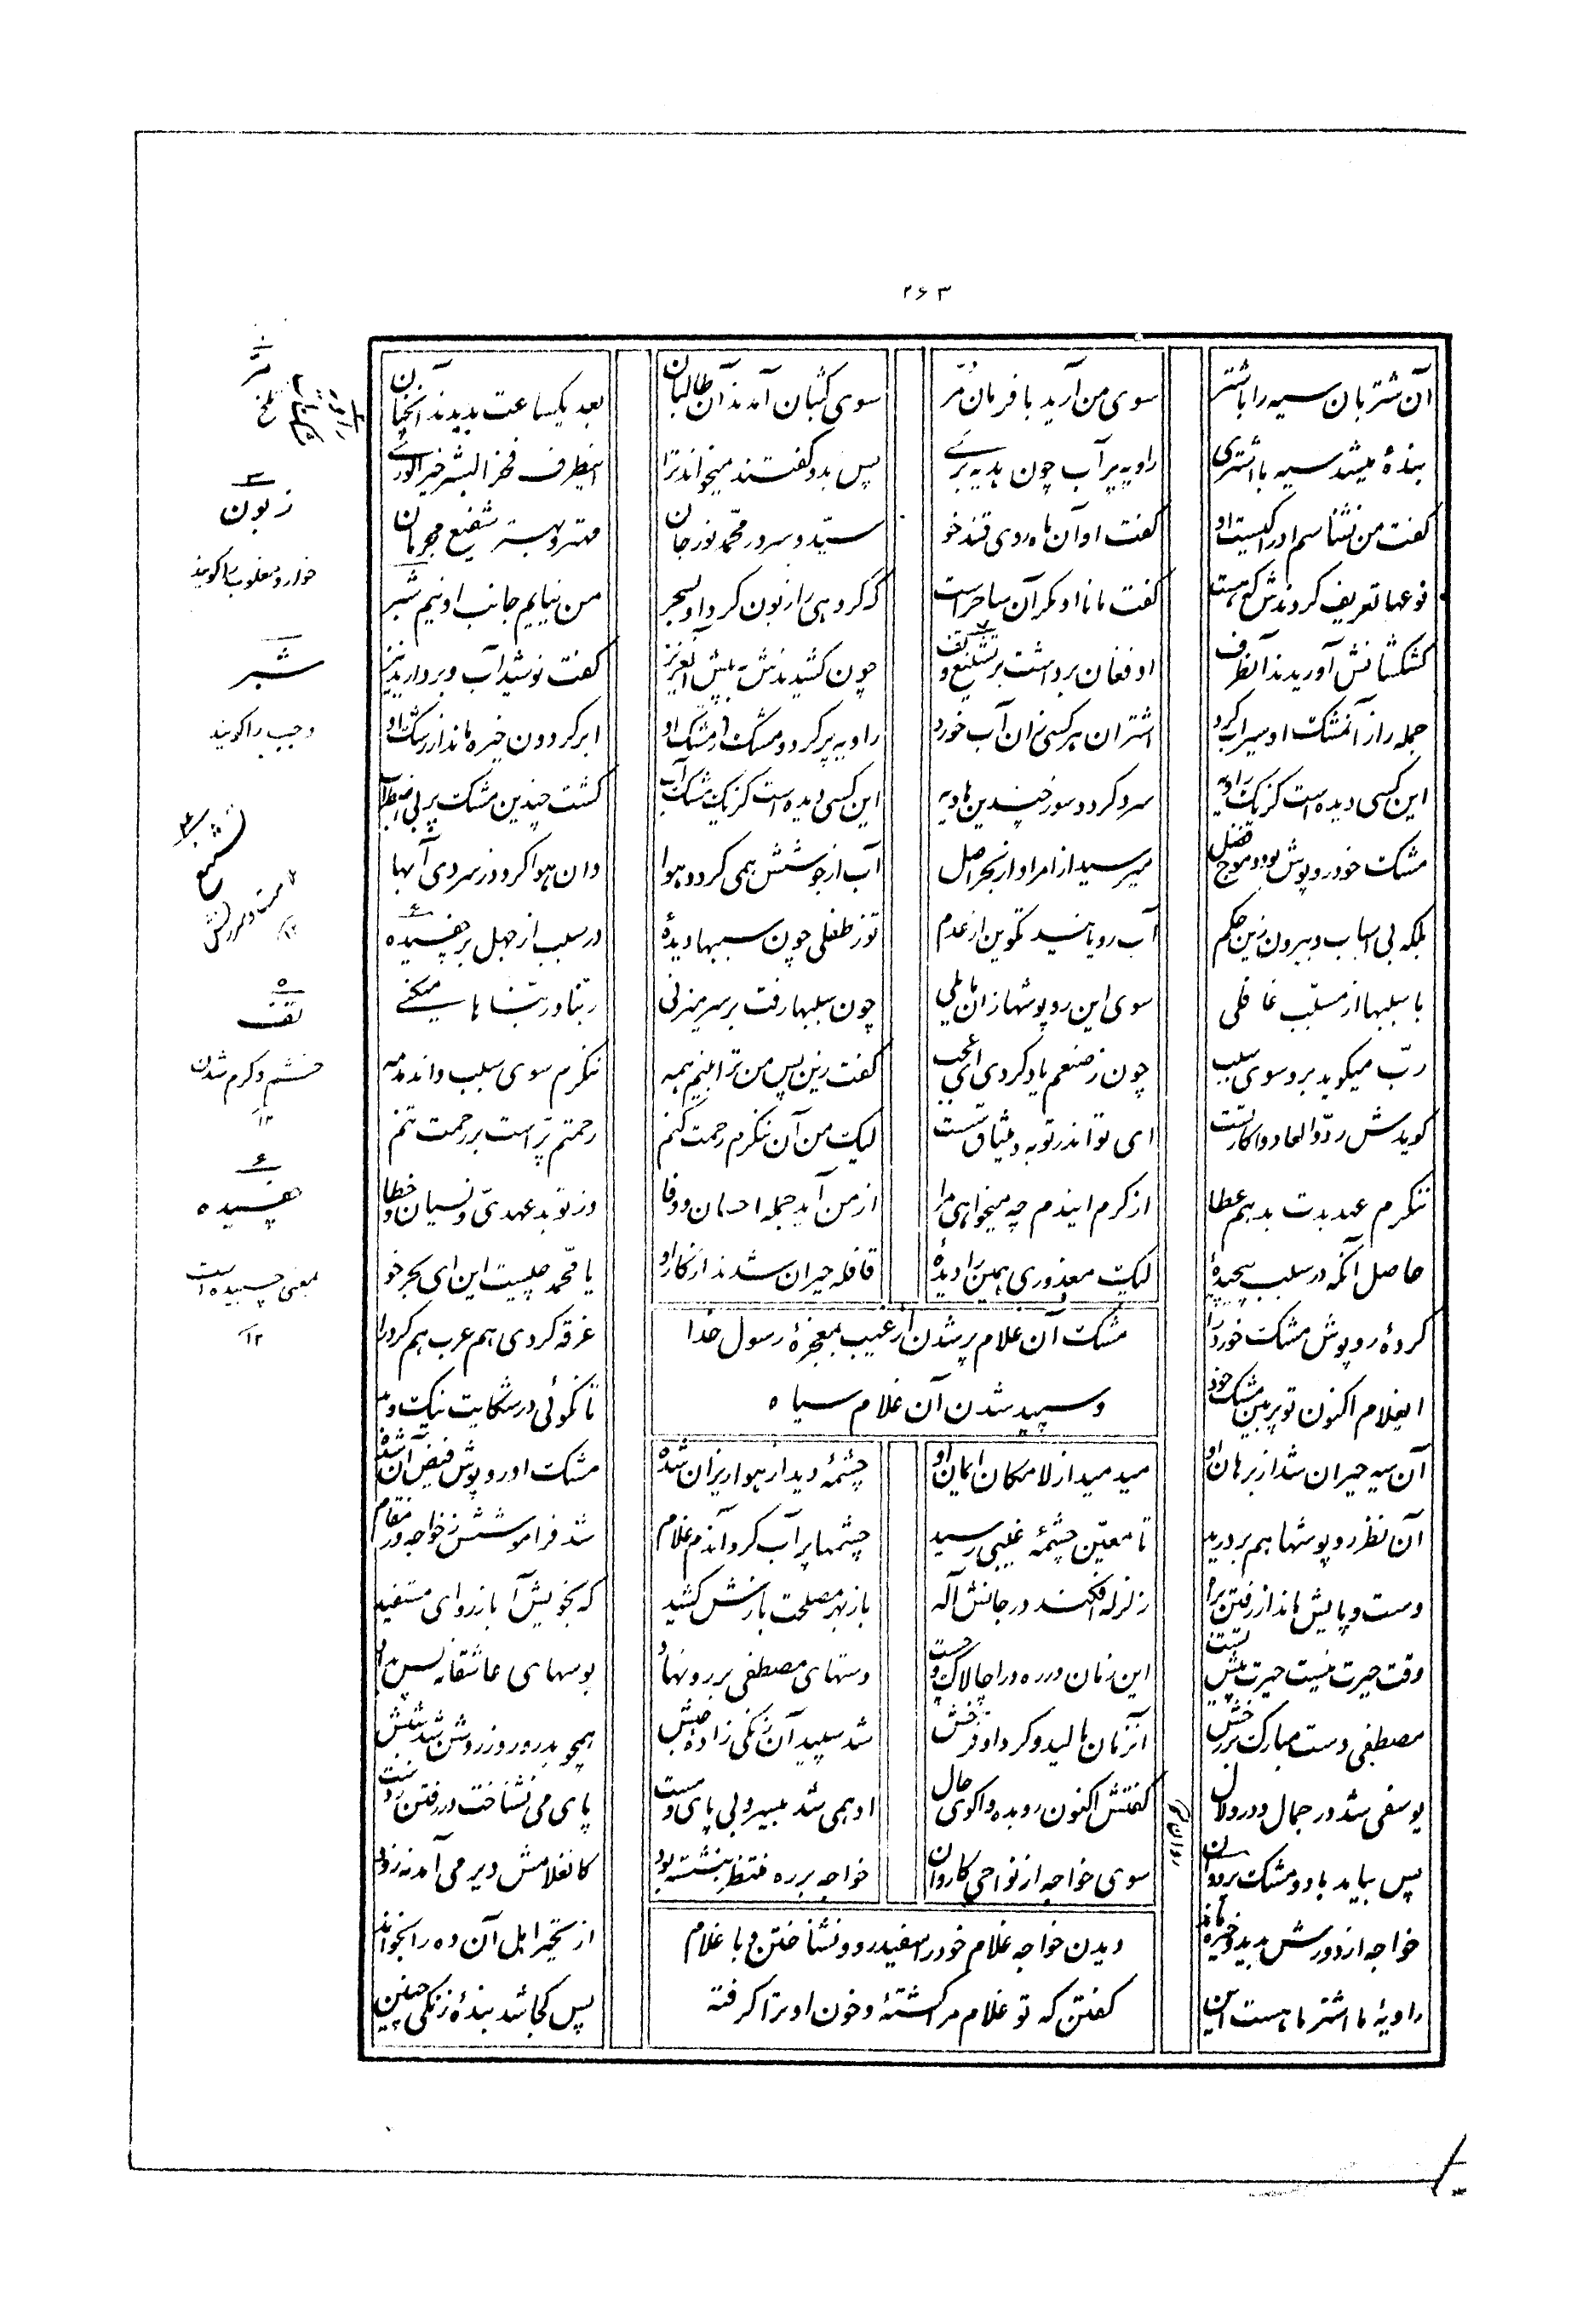 ۲۶۳
آن شتربان سیه را باشتر سوی من آرید با فرمان مُرّ سوی کثبان آمدند آن طالبان بعد یکساعت بدیدند آنچنان
بندهٔ میشد سیه با اشتری راویه پر آب چون هدیه بری پس بدو گفتند میخواند ترا اینطرف فخر البشر خیر الوری
گفت من نشناسم او را کیست او گفت او آن ماه روی قند خو سیّد و سرور محمّد نور جان مهتر و بهتر شفیع مجرمان
نوعها تعریف کردندش که هست گفت مانا او مگر آن ساحر است که گروهی را زبون کرد او بسحر من نیایم جانب او نیم شبر
کشکشانش آوریدند آنطرف او فغان برداشت بر تشنیع و تف چون کشیدندش به پیش آن عزیز گفت نوشید آب و بردارید نیز
جمله را زآنمشک او سیراب کرد اشتران هر کسی زان آب خورد راویه پر کرد و مشک از مشک او ابر گردون خیره ماند از رشک او
این کسی دیده است کز یک راویه سرد گردد سوز چندین هاویه این کسی دیده است کز یک مشک آب گشت چندین مشک پر بی اضطراب
مشک خود روپوش بود و موج فضل میرسید از امر او از بحر اصل آب از جوشش همی گردد هوا وان هوا گردد ز سردی آبها
بلکه بی اسباب و بیرون زین حکم آب رویانید تکوین از عدم تو ز طفلی چون سببها دیدهٔ در سبب از جهل بر چفسیده
با سببها از مسبّب غافلی سوی این روپوشها زان مایلی چون سببها رفت بر سر میزنی ربّنا و ربّناها میکنی
ربّ میگوید برو سوی سبب چون ز صنعم یاد کردی ای عجب گفت زین پس من ترا بینم همه ننگرم سوی سبب وان دمدمه
گویدش ردّوا لعادوا کار تست ای تو اندر توبه و میثاق سست لیک من آن ننگرم رحمت کنم رحمتم پرّ است بر رحمت تنم
ننگرم عهد بدت بدهم عطا از کرم ایندم چه میخواهی مرا از من آید جمله احسان و وفا وز تو بد عهدیّ و نسیان و خطا
حاصل آنکه در سبب پیچیدهٔ لیک معذوری همین را دیدهٔ قافله حیران شدند از کار او یا محمّد چیست این ای بحر خو
مشک آن غلام پر شدن از غیب بمعجزهٔ رسول خدا
و سپید شدن آن غلام سیاه
کردهٔ روپوش مشک خورد را غرقه کردی هم عرب هم کرد را
ایغلام اکنون تو پر بین مشک خود تا نگوئی در شکایت نیک و بد
آن سیه حیران شد از برهان او میدمید از لامکان ایمان او چشمهٔ دید از هوا ریزان شده مشک او روپوش فیض آن شده
آن نظر روپوشها هم بر درید تا معیّن چشمهٔ غیبی رسید چشمها پر آب کرد آندم غلام شد فراموشش ز خواجه وز مقام
دست و پایش ماند از رفتن براه زلزله افکند در جانش آله باز بهر مصلحت بازش کشید که بخویش آ باز رو ای مستفید
وقت حیرت نیست حیرت پیش تست این زمان در ره درا چالاک و چست دستهای مصطفی بر رو نهاد بوسهای عاشقانه بس بداد
مصطفی دست مبارک بر رخش آنزمان مالید و کرد او فرّخش شد سپید آن زنگی زادهٔ حبش همچو بدر و روز روشن شد شبش
یوسفی شد در جمال و در دلال گفتش اکنون رو بده واگوی حال او همی شد بیسر و بی پای و مست پای می نشناخت در رفتن ز دست
پس بیاید با دو مشک پر روان سوی خواجه از نواحی کاروان خواجه بر ره منتظر بنشسته بود کانغلامش دیر می آمد نه زود
دیدن خواجه غلام خود را سفید رو و نشناختن و با غلام
گفتن که تو غلام مرا کشتهٔ و خون او ترا گرفته
خواجه از دورش بدید و خیره ماند از تحیر اهل آن ده را بخواند
راویهٔ ما اشتر ما هست این پس کجا شد بندهٔ زنگی جبین
مُرّ
تلخ
۳
زبون
خوار و مغلوب را گویند
شبر
وجب را گویند
تشنیع
۵
تف
خشم و گرم شدن
۱۲
۶
چفسیده
بمعنی چسبیده است
۱۲